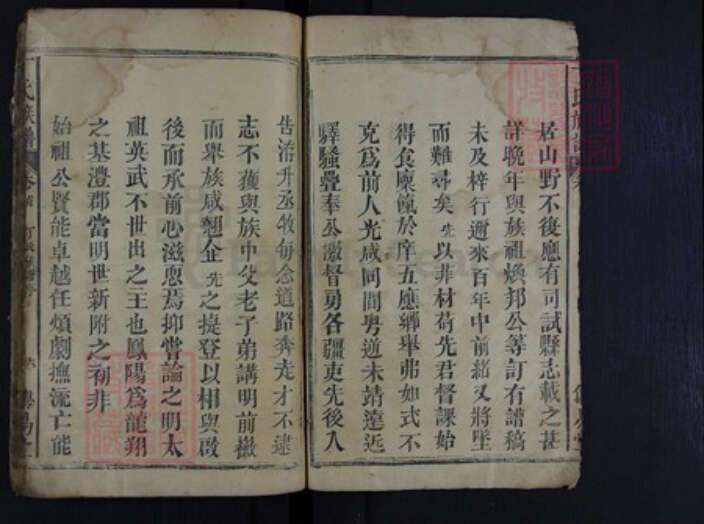 居山野不復應有司試縣志載之甚
詳晚年與族祖煥邦公等訂有譜稿
未及梓行邇來百年中前緒又將墜
而難尋矣先以非材荷先君督課始
得食廩餼於庠五應鄉舉弗如式不
克為前人光咸同間粵逆未靖遠近
驛騷疊奉公激督勇各疆吏先後入
告洊升丞牧每念道路奔走才不逮
志不獲與族中父老子弟講明前徽
而舉族咸翹企先之提登以相與啟
後而承前心滋恧焉抑嘗論之明太
祖英武不世出之主也鳳陽為龍翔
之基澧郡當明世新附之初非
始祖公賢能卓越任煩劇撫流亡能
氏族譜
六